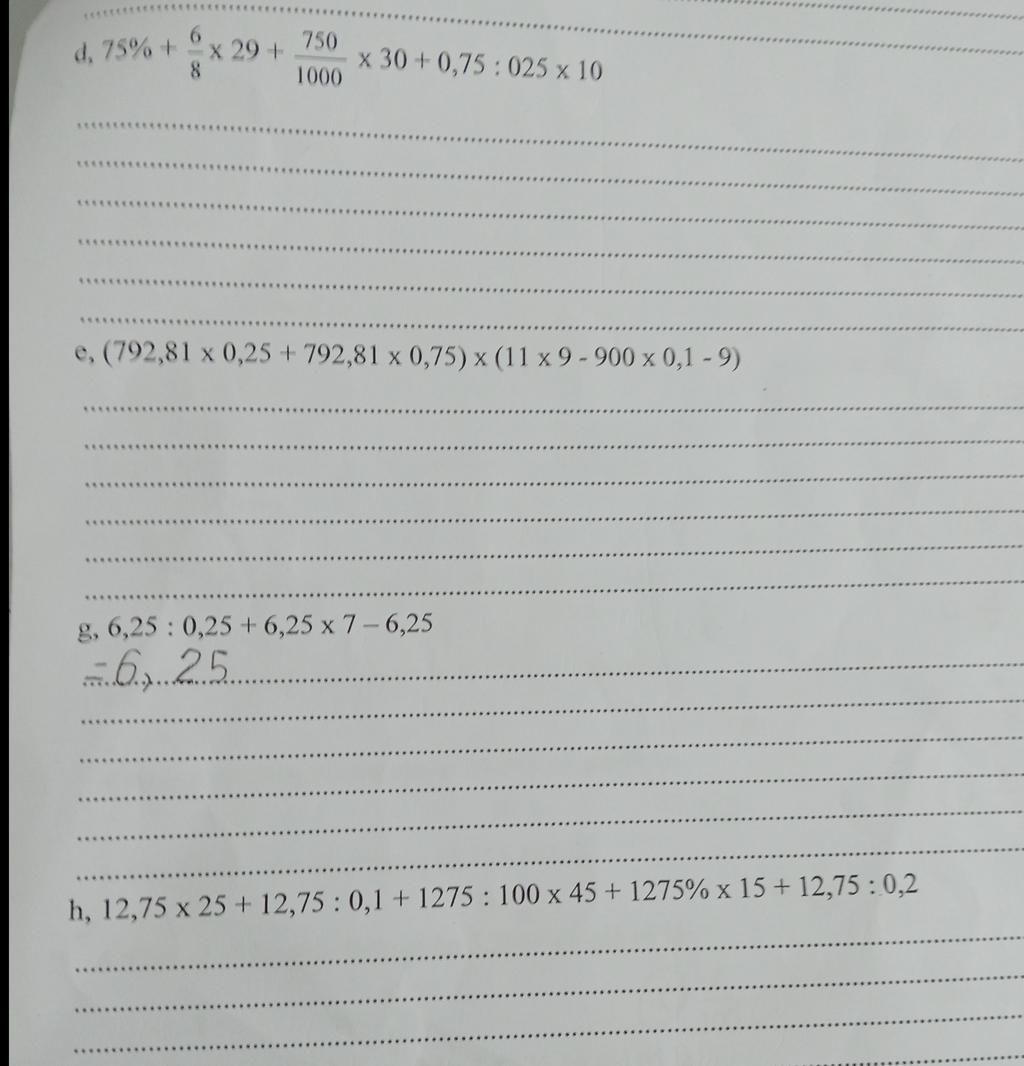 d, 75% + 6/8 x 29 + 750/1000 x 30 + 0,75 : 025 x 10
e, (792,81 x 0,25 + 792,81 x 0,75) x (11 x 9 - 900 x 0,1 - 9)
g, 6,25 : 0,25 + 6,25 x 7 – 6,25
= 6, 25
h, 12,75 x 25 + 12,75 : 0,1 + 1275 : 100 x 45 + 1275% x 15 + 12,75 : 0,2